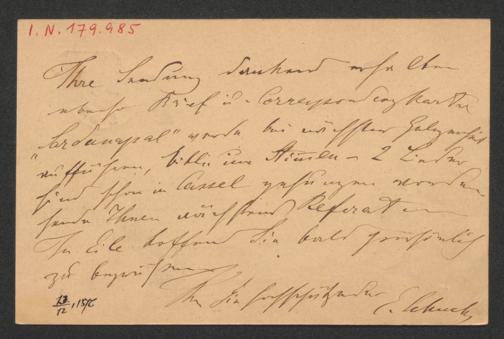 I.N. 179.985
Ihre Sendung dankend erhalten
ebenso Brief u. Correspondenzkarte
"Sardanapal" werde bei nächster Gelegenheit
aufführen, bitte um Stimmen – 2 Lieder
sind schon in Cassel gesungen worden
sende Ihnen nächstens Referat
In Eile hoffend Sie bald persönlich
zu begrüßen
Ihr Sie hochschätzender